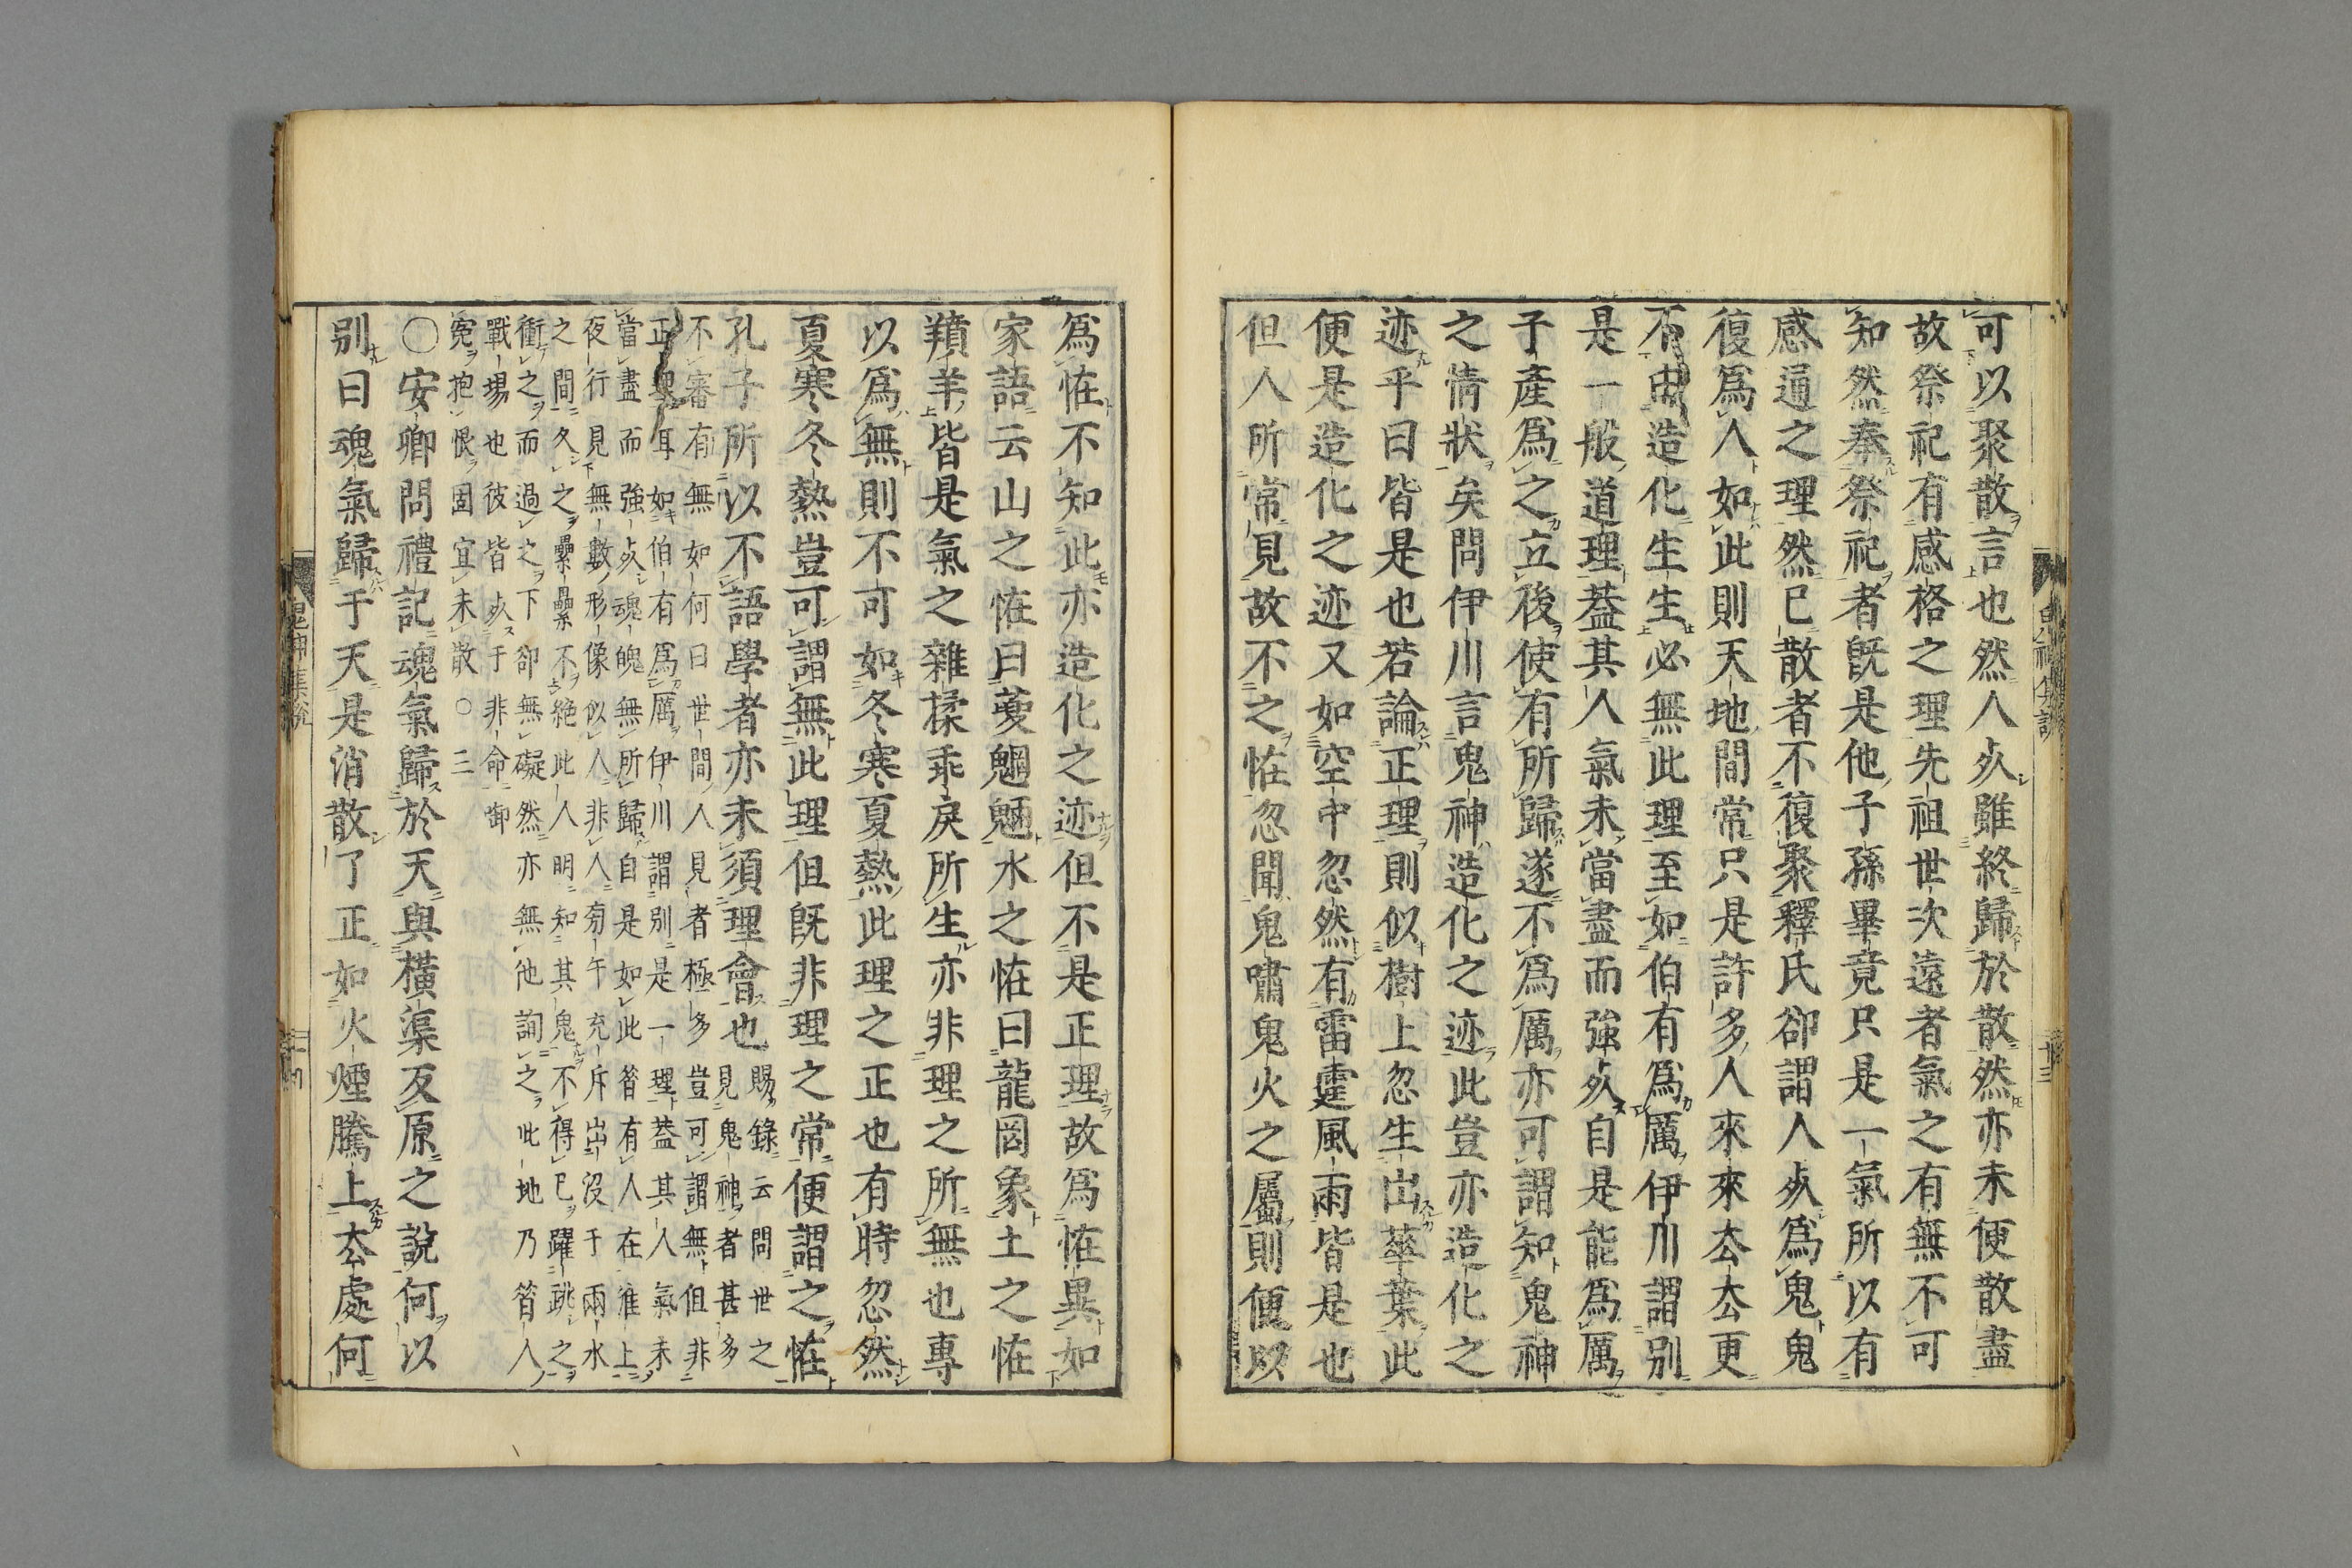 可以聚散言也然人死雖終歸於散然亦未便散盡
故祭祀有感格之理先祖世次遠者氣之有無不可
知然奉祭祀者既是他子孫畢竟只是一氣所以有
感通之理然已散者不復聚釋氏卻謂人死爲鬼鬼
復爲人如此則天地間常只是許多人來來去去更
不由造化生生必無此理至如伯有爲厲伊川謂別
是一般道理葢其人氣未當盡而強死自是能爲厲
子產爲之立後使有所歸遂不爲厲亦可謂知鬼神
之情狀矣問伊川言鬼神造化之迹此豈亦造化之
迹乎曰皆是也若論正理則似樹上忽生出華葉此
便是造化之迹又如空中忽然有雷霆風雨皆是也
但人所常見故不之恠忽聞鬼嘯鬼火之屬則便以
鬼神集說
廿三
爲恠不知此亦造化之迹但不是正理故爲恠異如
家語云山之恠曰夔魍魎水之恠曰龍罔象土之恠
羵羊皆是氣之雜揉乖戾所生亦非理之所無也專
以爲無則不可如冬寒夏熱此理之正也有時忽然
夏寒冬熱豈可謂無此理但既非理之常便謂之恠
孔子所以不語學者亦未須理會也
賜錄云問世之見鬼神者甚多
不審有無如何曰世間人見者極多豈可謂無但非
正理耳如伯有爲厲伊川謂別是一理葢其人氣未
當盡而強死魂魄無所歸自是如此昔有人在淮上
夜行見無數形像似人非人旁午充斥出沒于兩水
之間久之纍纍不絶此人明知其鬼不得已躍跳之
衝之而過之下卻無礙然亦無他詢之此地乃昔人
戰場也彼皆死于非命銜
冤抱恨固宜未散○三
○安卿問禮記魂氣歸於天與橫渠反原之說何以
別曰魂氣歸于天是消散了正如火煙騰上去處何
鬼神集說